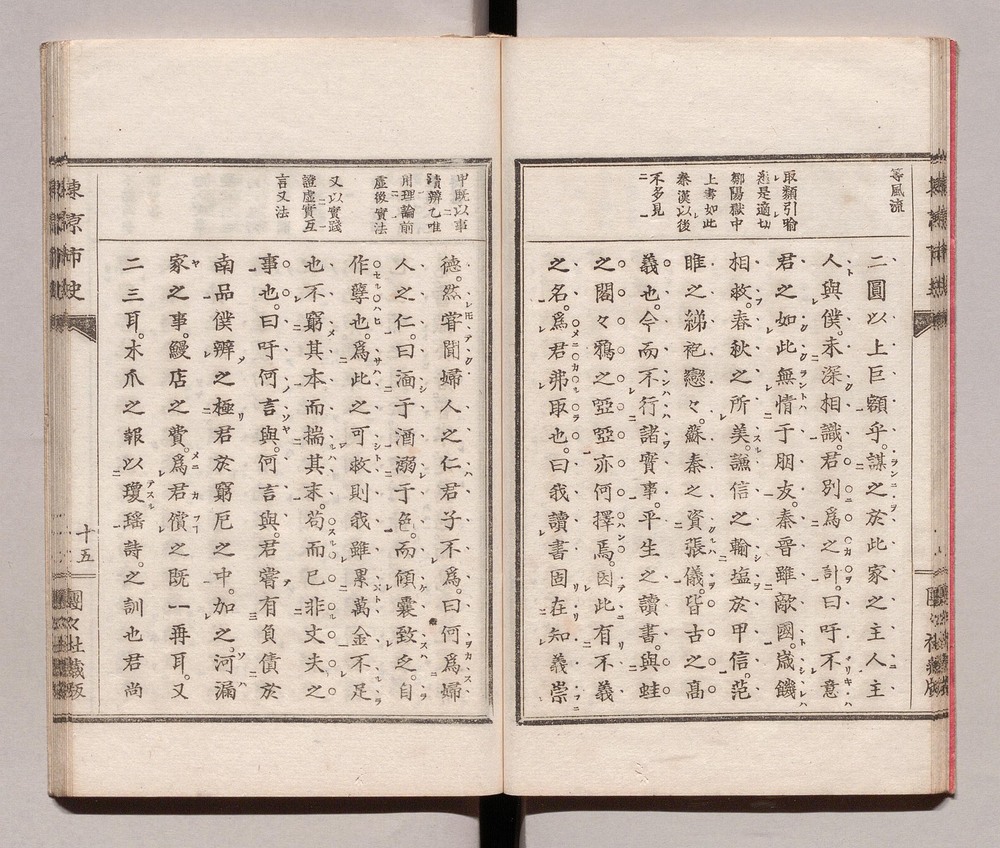 等風流
取類引喩
悉是適切
鄒陽獄中
上書如此
秦漢以後
不多見
二圓以上巨額乎。謀之於此家之主人主
人與僕。未深相識。君別爲之計。曰吁不意
君之如此無情于朋友。秦晉雖敵國。歳饑
相救。春秋之所美。謙信之輸塩於甲信。范
睢之綈袍戀々。蘇秦之資張儀。皆古之高
義也。今而不行諸實事。平生之讀書。與蛙
之閣々鴉之啞啞亦何擇焉。因此有不義
之名。爲君弗取也。曰我讀書固在知義崇
甲既以事
績辨乙唯
用理論前
虚後實法
又以實踐
證虚實互
言又法
德。然嘗聞婦人之仁君子不爲。曰何爲婦
人之仁。曰湎于酒溺于色。而傾囊致之。自
作孽也。爲此之可救則我雖累萬金不足
也不窮其本而揣其末。苟而已非丈夫之
事也。曰吁何言與。何言與。君嘗有負債於
南品僕辨之極君於窮厄之中。加之。河漏
家之事。鰻店之費。爲君償之既一再耳。又
二三耳。木爪之報以瓊瑶詩。之訓也君尚
東京柿史
十五
團々社蔵版